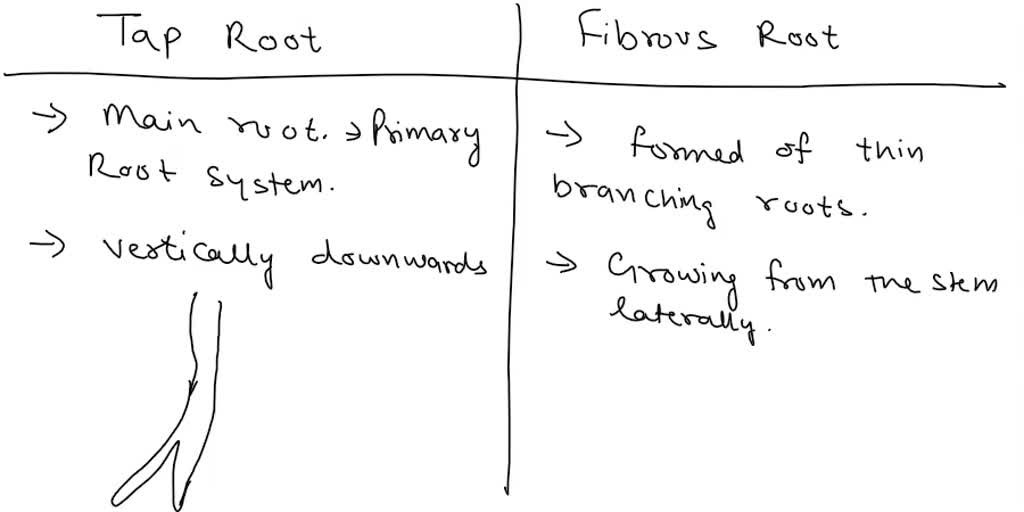 Tap Root
Fibrous Root
→ Main root. → Primary
Root system.
→ vertically downwards
→ formed of thin
branching roots.
→ Growing from the stem
laterally.